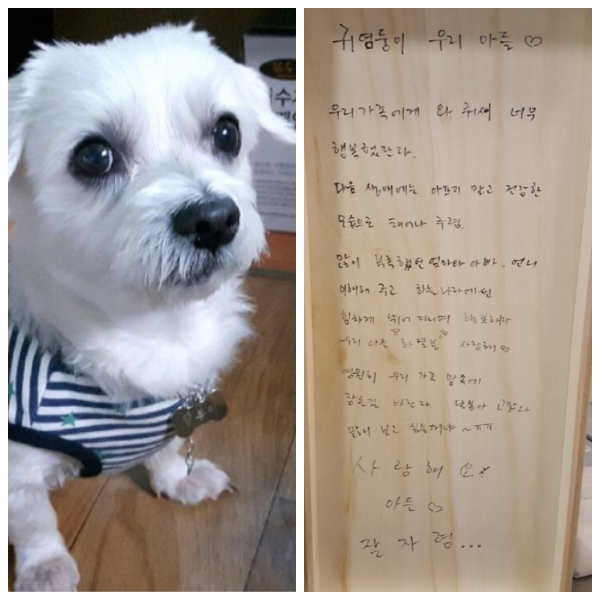 귀염둥이 우리 아들♡
우리가족에게 와 줘서 너무
행복했단다.
다음 생애에는 아프지 말고 건강한
모습으로 태어나 주렴.
많이 부족했던 엄마다 아빠. 언니
이해해 주고 하늘나라에선
힘차게 뛰어 다니며
우리 아들 사랑해♡
영원히 우리 가족 맘속에
많이 보고 싶을꺼야~ㅠㅠ
사랑해요
아들♡
잘자렴...